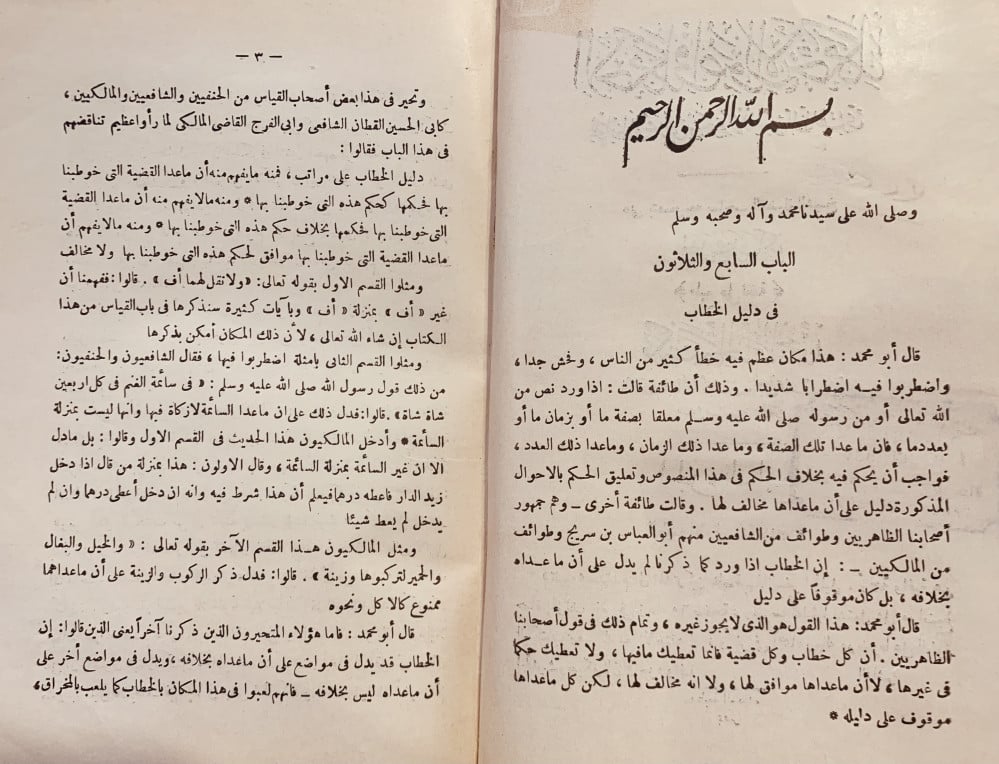 بسم الله الرحمن الرحيم
وصلى الله على سيدنا محمد وآله وصحبه وسلم
الباب السابع والثلاثون
فى دليل الخطاب
قال أبو محمد : هذا مكان عظم فيه خطأ كثير من الناس ، وفحش جدا ،
واضطربوا فيه اضطرابا شديدا . وذلك أن طائفة قالت : اذا ورد نص من
الله تعالى أو من رسوله صلى الله عليه وسلم معلقا بصفة ما أو بزمان ما أو
بعدد ما ، فان ما عدا تلك الصفة ، وما عدا ذلك الزمان ، وماعدا ذلك العدد ،
فواجب أن يحكم فيه بخلاف الحكم فى هذا المنصوص وتعليق الحكم بالاحوال
المذكورة دليل على أن ماعداها مخالف لها . وقالت طائفة أخرى ــ وهم جمهور
أصحابنا الظاهريين وطوائف من الشافعيين منهم أبو العباس بن سريج وطوائف
من المالكيين ــ : إن الخطاب اذا ورد كما ذكرنا لم يدل على أن ما عداه
بخلافه ، بل كان موقوفاً على دليل
قال أبو محمد : هذا القول هو الذى لا يجوز غيره ، وتمام ذلك فى قول أصحابنا
الظاهريين . أن كل خطاب وكل قضية فانما تعطيك مافيها ، ولا تعطيك حكما
فى غيرها ، لا أن ماعداها موافق لها ، ولا انه مخالف لها ، لكن كل ماعداها
موقوف على دليله *
— ٣ —
وتحير فى هذا بعض أصحاب القياس من الحنفيين والشافعيين والمالكيين ،
كابى الحسين القطان الشافعى وابى الفرج القاضى المالكى لما رأوا عظيم تناقضهم
فى هذا الباب فقالوا :
دليل الخطاب على مراتب ، فمنه مايفهم منه أن ماعدا القضية التى خوطبنا
بها فحكمها كحكم هذه التى خوطبنا بها * ومنه مالا يفهم منه أن ماعدا القضية
التى خوطبنا بها فحكمها بخلاف حكم هذه التى خوطبنا بها * ومنه مالا يفهم أن
ماعدا القضية التى خوطبنا بها موافق لحكم هذه التى خوطبنا بها ولا مخالف
ومثلوا القسم الاول بقوله تعالى: «ولا تقل لهما أف» . قالوا: ففهمنا أن
غير «أف» بمنزلة «أف» وبآيات كثيرة سنذكرها فى باب القياس من هذا
الكتاب إن شاء الله تعالى ، لأن ذلك المكان أمكن بذكرها
ومثلوا القسم الثانى بامثلة اضطربوا فيها ، فقال الشافعيون والحنفيون:
من ذلك قول رسول الله صلى الله عليه وسلم : « فى سائمة الغنم فى كل اربعين
شاة شاة» .قالوا: فدل ذلك على ان ماعدا السائمة لا زكاة فيها وانها ليست بمنزلة
السائمة * وأدخل المالكيون هذا الحديث فى القسم الاول وقالوا : بل مادل
الا ان غير السائمة بمنزلة السائمة ، وقال الاولون : هذا بمنزلة من قال اذا دخل
زيد الدار فاعطه درهما فيعلم أن هذا شرط فيه وانه ان دخل أعطى درهما وان لم
يدخل لم يعط شيئا
ومثل المالكيون هـذا القسم الآخر بقوله تعالى : « والخيل والبغال
والحمير لتركبوها وزينة » . قالوا: فدل ذكر الركوب والزينة على أن ماعداهما
ممنوع كالاكل ونحوه
قال أبو محمد : فاما هؤلاء المتحيرون الذين ذكرنا آخراً يعنى الذين قالوا: إن
الخطاب قد يدل فى مواضع على أن ماعداه بخلافه ، ويدل فى مواضع أخر على
أن ماعداه ليس بخلافه ــ فانهم لعبوا فى هذا المكان بالخطاب كما يلعب بالمخراق،